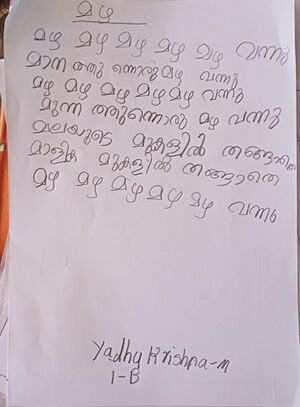 മഴ
മഴ മഴ മഴ മഴ മഴ വന്നു
മാന ത്തു ന്നൊരു മഴ വന്നു
മഴ മഴ മഴ മഴ മഴ വന്നു
മുന്ന ത്തുന്നൊരു മഴ വന്നു
മലയുടെ മുകളിൽ തങ്ങാതെ
മാളിക മുകളിൽ തങ്ങാതെ
മഴ മഴ മഴ മഴ മഴ വന്നു
Yadhu Krishna-M
1-B